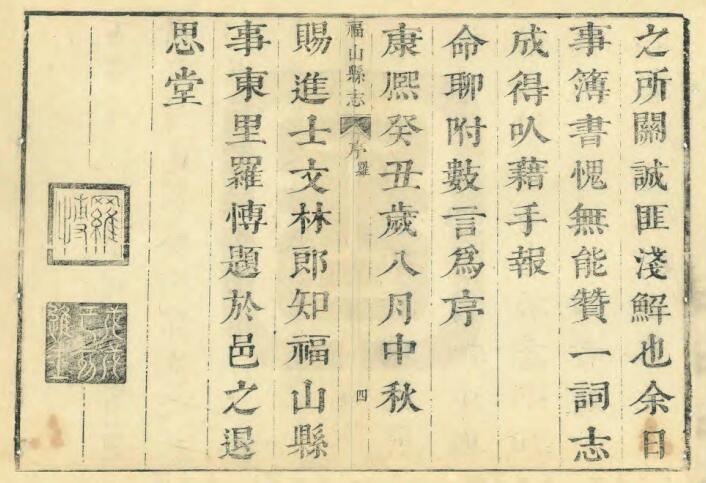 之所關誠匪淺解也余日
事簿書愧無能贊一詞志
成得以藉手報
命聊附數言爲序
康熙癸丑歲八月中秋
福山縣志 序 羅 四
賜進士文林郎知福山縣
事東里羅博題於邑之退
思堂
羅博